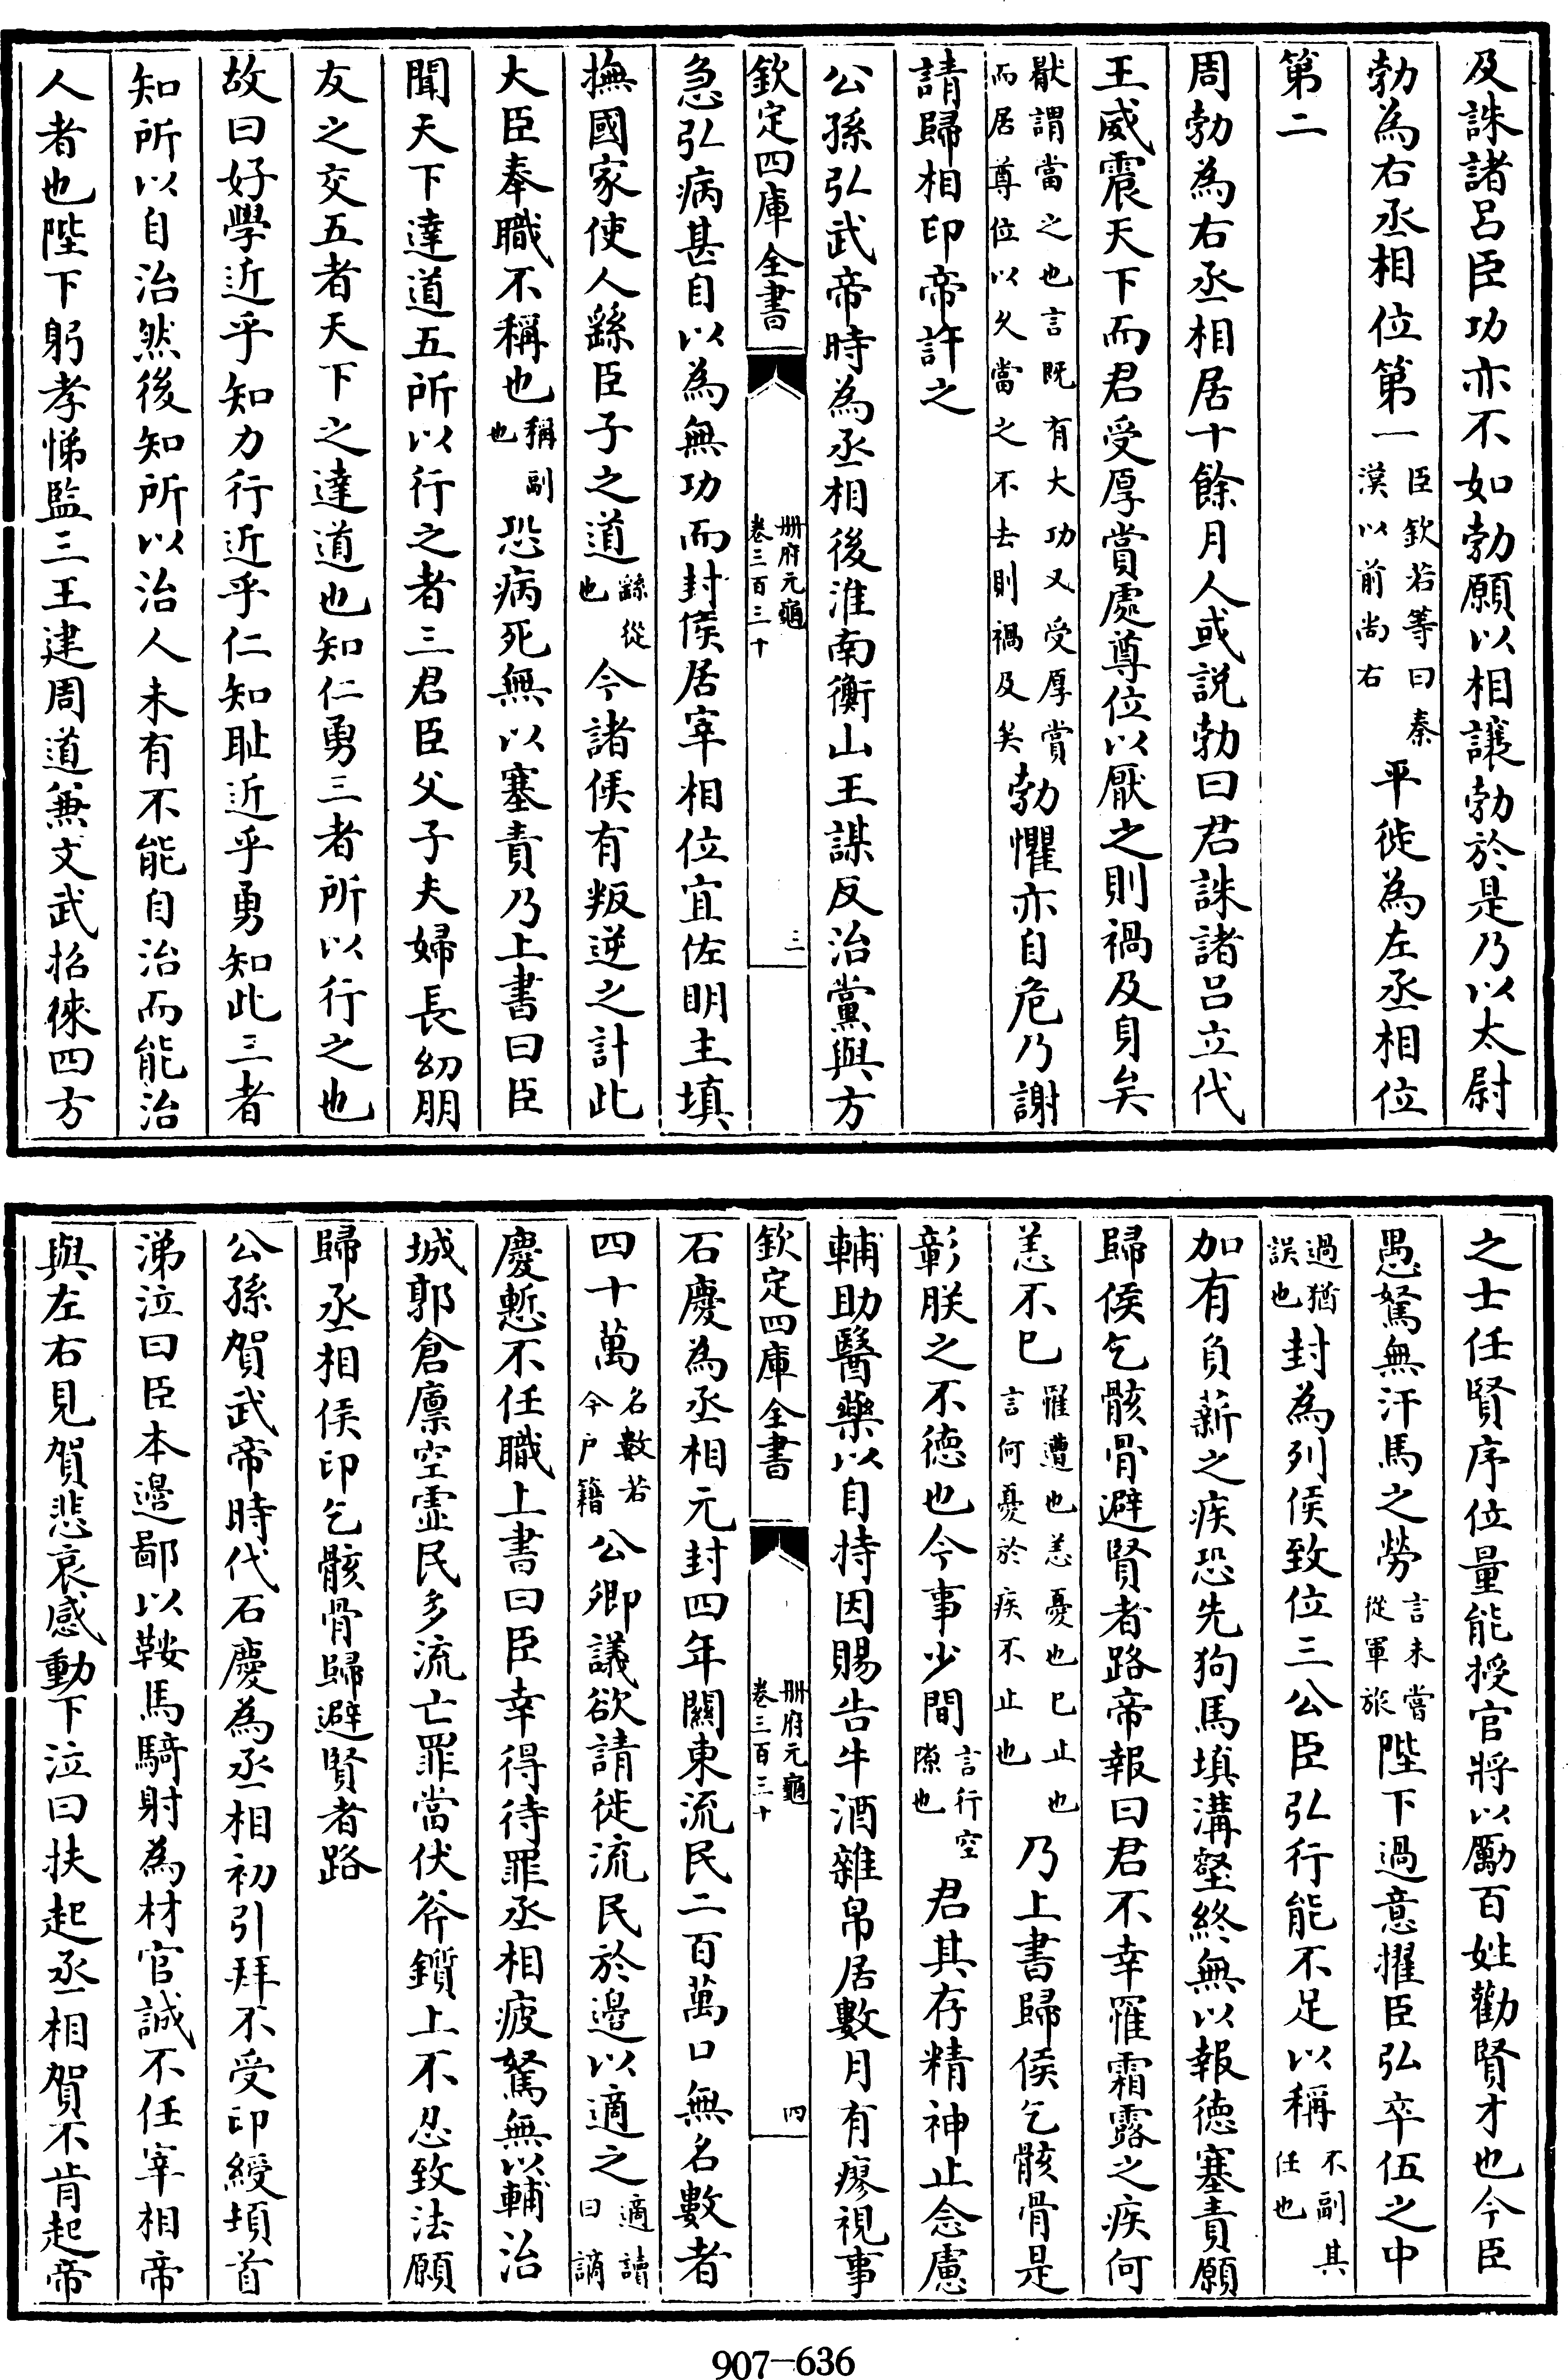 及誅諸呂臣功亦不如勃願以相讓勃於是乃以太尉
勃為右丞相位第一臣欽若等曰秦漢以前尚右平徙為左丞相位
第二
周勃為右丞相居十餘月人或説勃曰君誅諸呂立代
王威震天下而君受厚賞處尊位以厭之則禍及身矣
厭謂當之也言既有大功又受厚賞而居尊位以久當之不去則禍及矣勃懼亦自危乃謝
請歸相印帝許之
公孫弘武帝時為丞相後淮南衡山王謀反治黨與方
欽定四庫全書
冊府元龜
卷三百三十
三
急弘病甚自以為無功而封侯居宰相位宜佐明主填
撫國家使人繇臣子之道繇從也今諸侯有叛逆之計此
大臣奉職不稱也稱副也恐病死無以塞責乃上書曰臣
聞天下達道五所以行之者三君臣父子夫婦長幼朋
友之交五者天下之達道也知仁勇三者所以行之也
故曰好學近乎知力行近乎仁知耻近乎勇知此三者
知所以自治然後知所以治人未有不能自治而能治
人者也陛下躬孝悌監三王建周道兼文武招徠四方
之士任賢序位量能授官將以勵百姓勸賢才也今臣
愚駑無汗馬之勞言未嘗從軍旅陛下過意擢臣弘卒伍之中
過猶誤也封為列侯致位三公臣弘行能不足以稱不副其任也
加有負薪之疾恐先狗馬填溝壑終無以報德塞責願
歸侯乞骸骨避賢者路帝報曰君不幸罹霜露之疾何
恙不已罹遭也恙憂也已止也言何憂於疾不止也乃上書歸侯乞骸骨是
彰朕之不德也今事少間言行空隙也君其存精神止念慮
輔助醫藥以自持因賜告牛酒雜帛居數月有瘳視事
欽定四庫全書
冊府元龜
卷三百三十
四
石慶為丞相元封四年關東流民二百萬口無名數者
四十萬名數若今戶籍公卿議欲請徙流民於邊以適之適讀曰謫
慶慙不任職上書曰臣幸得待罪丞相疲駑無以輔治
城郭倉廪空虛民多流亡罪當伏斧鑕上不忍致法願
歸丞相侯印乞骸骨歸避賢者路
公孫賀武帝時代石慶為丞相初引拜不受印綬頓首
涕泣曰臣本邉鄙以鞍馬騎射為材官誠不任宰相帝
與左右見賀悲哀感動下泣曰扶起丞相賀不肯起帝
907-636